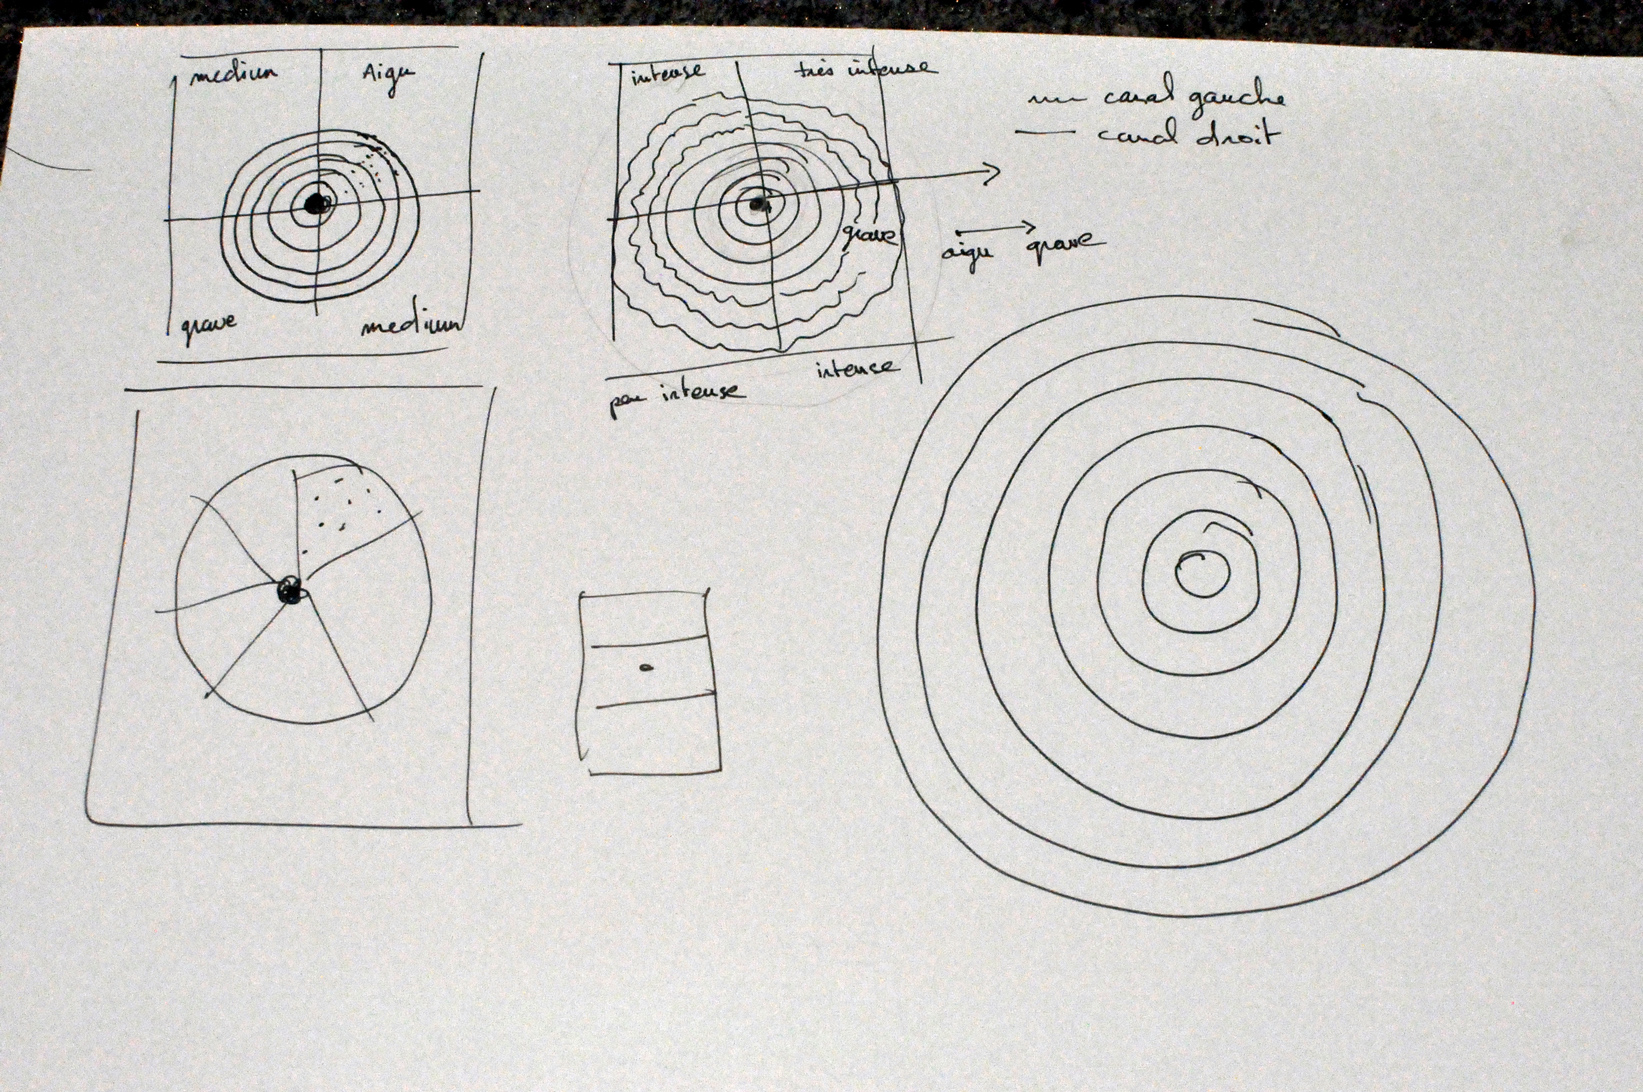 medium Aigu
grave medium
intense très intense
grave
peu intense intense
canal gauche
canal droit
aigu grave